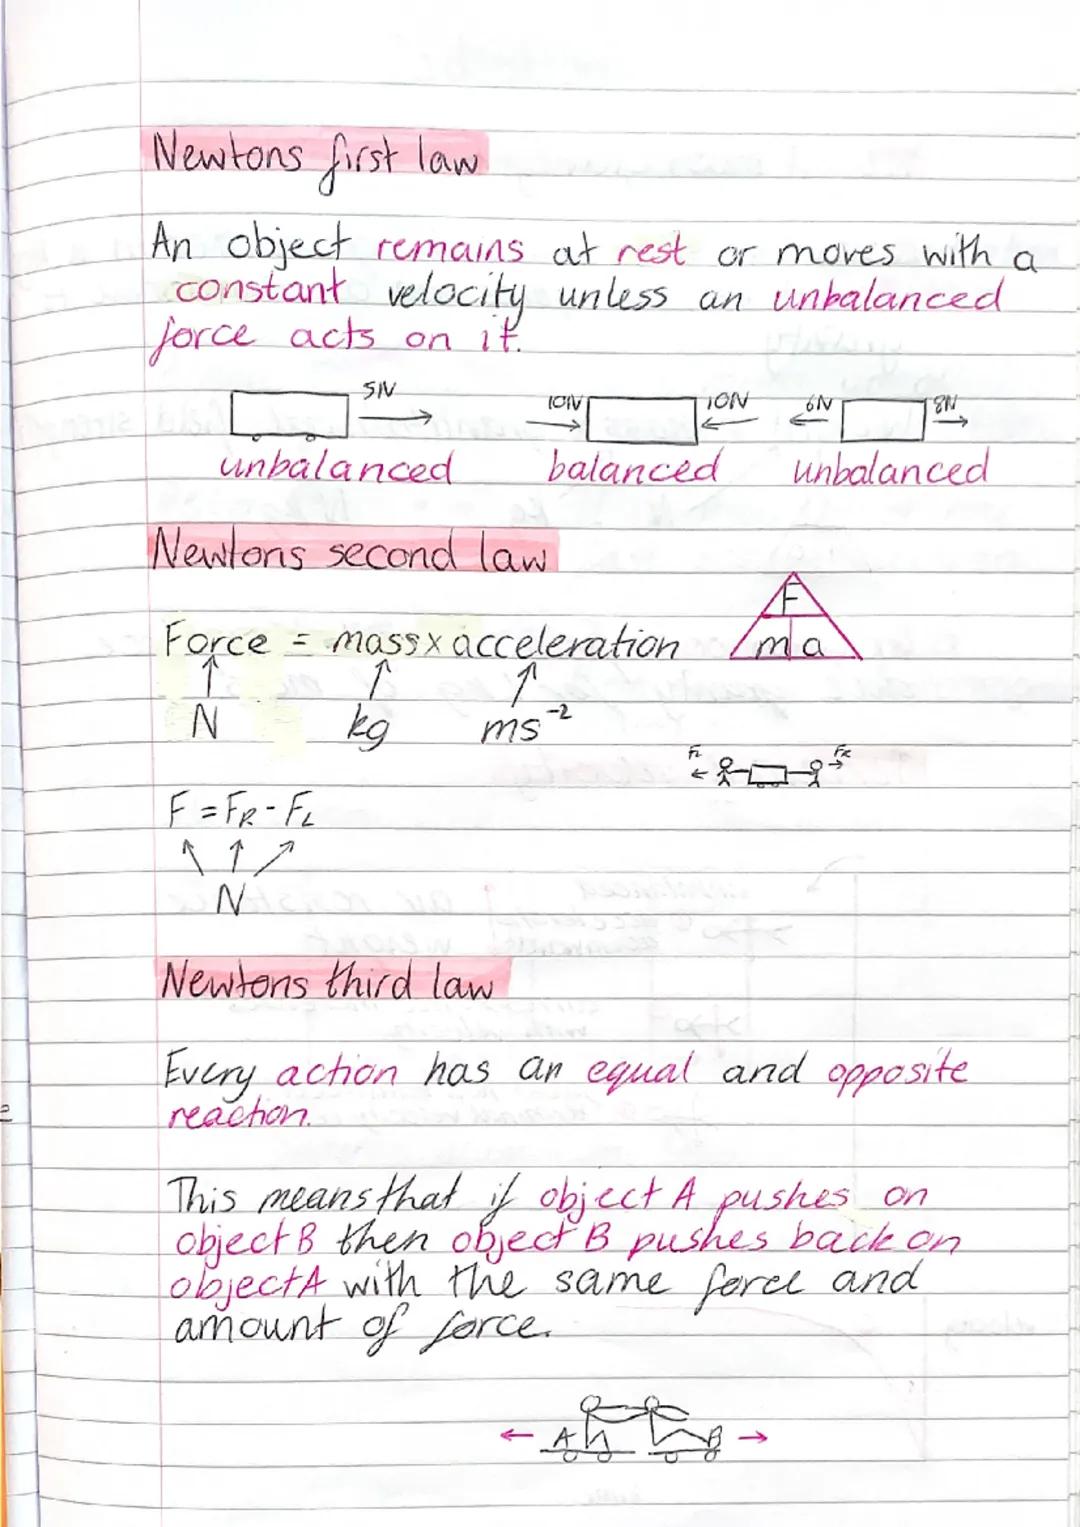 Newtons first law
An object remains at rest or moves with a
constant velocity unless an unbalanced
force acts on it.
5N 10N 10N 6N 8N
unbalanced balanced unbalanced
Newtons second law
F
Force = mass x acceleration m a
N kg ms⁻²
FL FR
F = FR - FL
N
Newtons third law
Every action has an equal and opposite
reaction.
This means that if object A pushes on
object B then object B pushes back on
object A with the same force and
amount of force.
A B